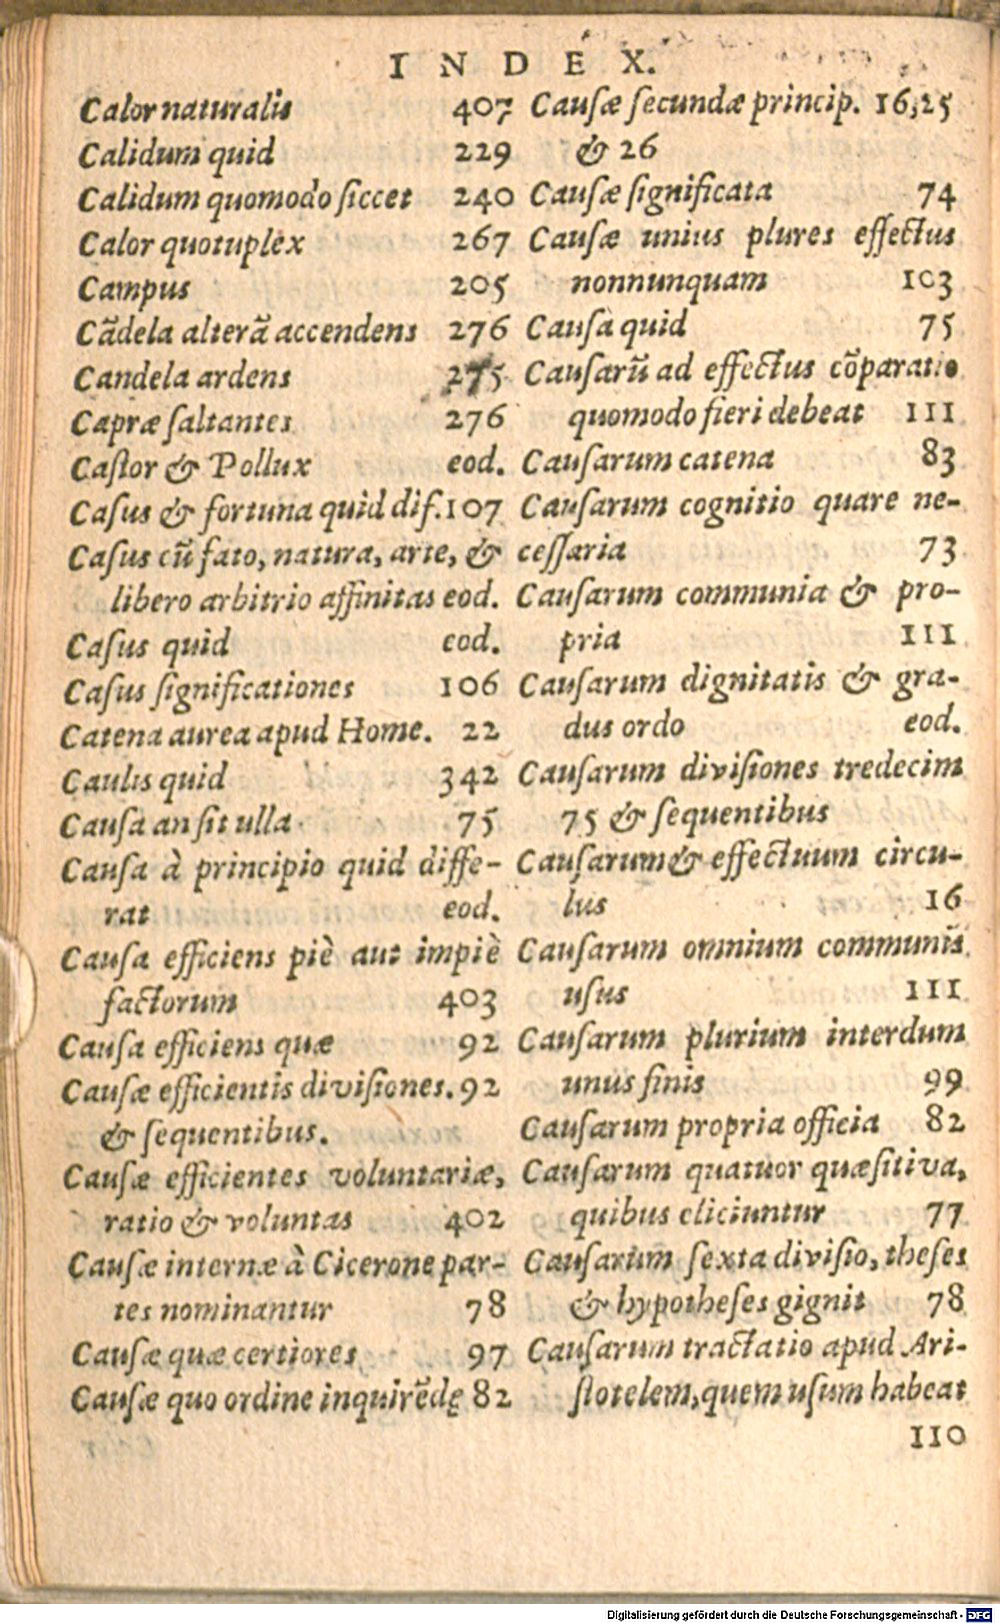 INDEX.
Calor naturalis 407
Calidum quid 229
Calidum quomodo ſiccet 240
Calor quotuplex 267
Campus 205
Cãdela alterã accendens 276
Candela ardens 275
Capræ ſaltantes 276
Caſtor & Pollux eod.
Caſus & fortuna quid dif. 107
Caſus cũ fato, natura, arte, &
libero arbitrio affinitas eod.
Caſus quid eod.
Caſus ſignificationes 106
Catena aurea apud Home. 22
Caulis quid 342
Cauſa an ſit ulla 75
Cauſa à principio quid diffe-
rat eod.
Cauſa efficiens piè aut impiè
factorum 403
Cauſa efficiens quæ 92
Cauſæ efficientis diviſiones. 92
& ſequentibus.
Cauſæ efficientes voluntariæ,
ratio & voluntas 402
Cauſæ internæ à Cicerone par-
tes nominantur 78
Cauſæ quæ certiores 97
Cauſæ quo ordine inquirẽdę 82
Cauſæ ſecundæ princip. 16,25
& 26
Cauſæ ſignificata 74
Cauſæ unius plures effectus
nonnunquam 103
Cauſa quid 75
Cauſarũ ad effectus cõparatio
quomodo fieri debeat 111
Cauſarum catena 83
Cauſarum cognitio quare ne-
ceſſaria 73
Cauſarum communia & pro-
pria 111
Cauſarum dignitatis & gra-
dus ordo eod.
Cauſarum diviſiones tredecim
75 & ſequentibus
Cauſarum & effectuum circu-
lus 16
Cauſarum omnium communis
uſus 111
Cauſarum plurium interdum
unus finis 99
Cauſarum propria officia 82
Cauſarum quatuor quæſitiva,
quibus eliciuntur 77
Cauſarum ſexta diviſio, theſes
& hypotheſes gignit 78
Cauſarum tractatio apud Ari-
ſtotelem, quem uſum habeat
110
Digitalisierung gefördert durch die Deutsche Forschungsgemeinschaft - DFG